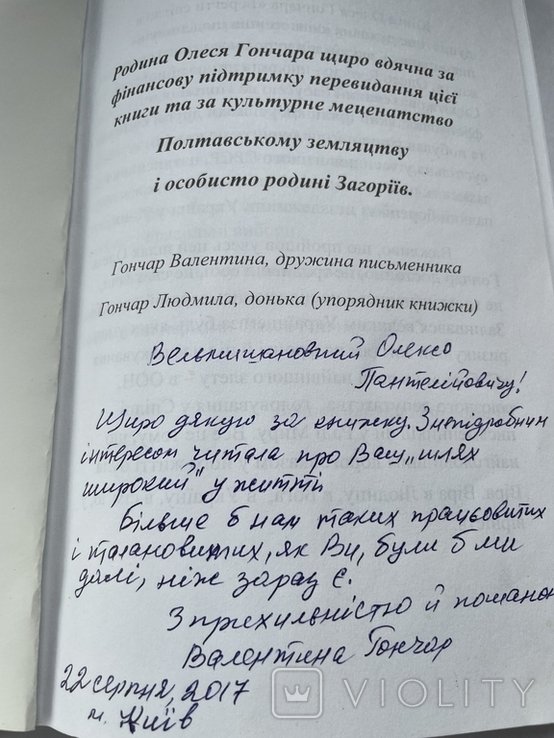 Родина Олеся Гончара щиро вдячна за
фінансову підтримку перевидання цієї
книги та за культурне меценатство
Полтавському земляцтву
і особисто родині Загоріїв.
Гончар Валентина, дружина письменника
Гончар Людмила, донька (упорядник книжки)
Вельмишановний Олексо
Пантелійовичу!
Щиро дякую за книжку. З непідробним
інтересом читала про Ваш „шлях
широкий" у житті
Більше б нам таких працьовитих
і талановитих, як Ви, були б ми
далі, ніж зараз є.
З прихильністю й пошаною
Валентина Гончар
22 серпня, 2017
м. Київ
VIOLITY